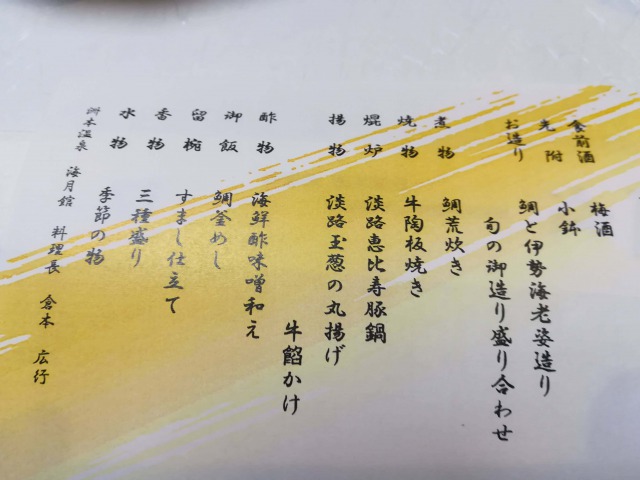 食前酒 梅酒
先附 小鉢
お造り 鯛と伊勢海老姿造り
旬の御造り盛り合わせ
煮物 鯛荒炊き
焼物 牛陶板焼き
焜炉 淡路恵比寿豚鍋
揚物 淡路玉葱の丸揚げ
牛餡かけ
酢物 海鮮酢味噌和え
御飯 鯛釜めし
留椀 すまし仕立て
香物 三種盛り
水物 季節の物
洲本温泉 海月館 料理長 倉本 広行